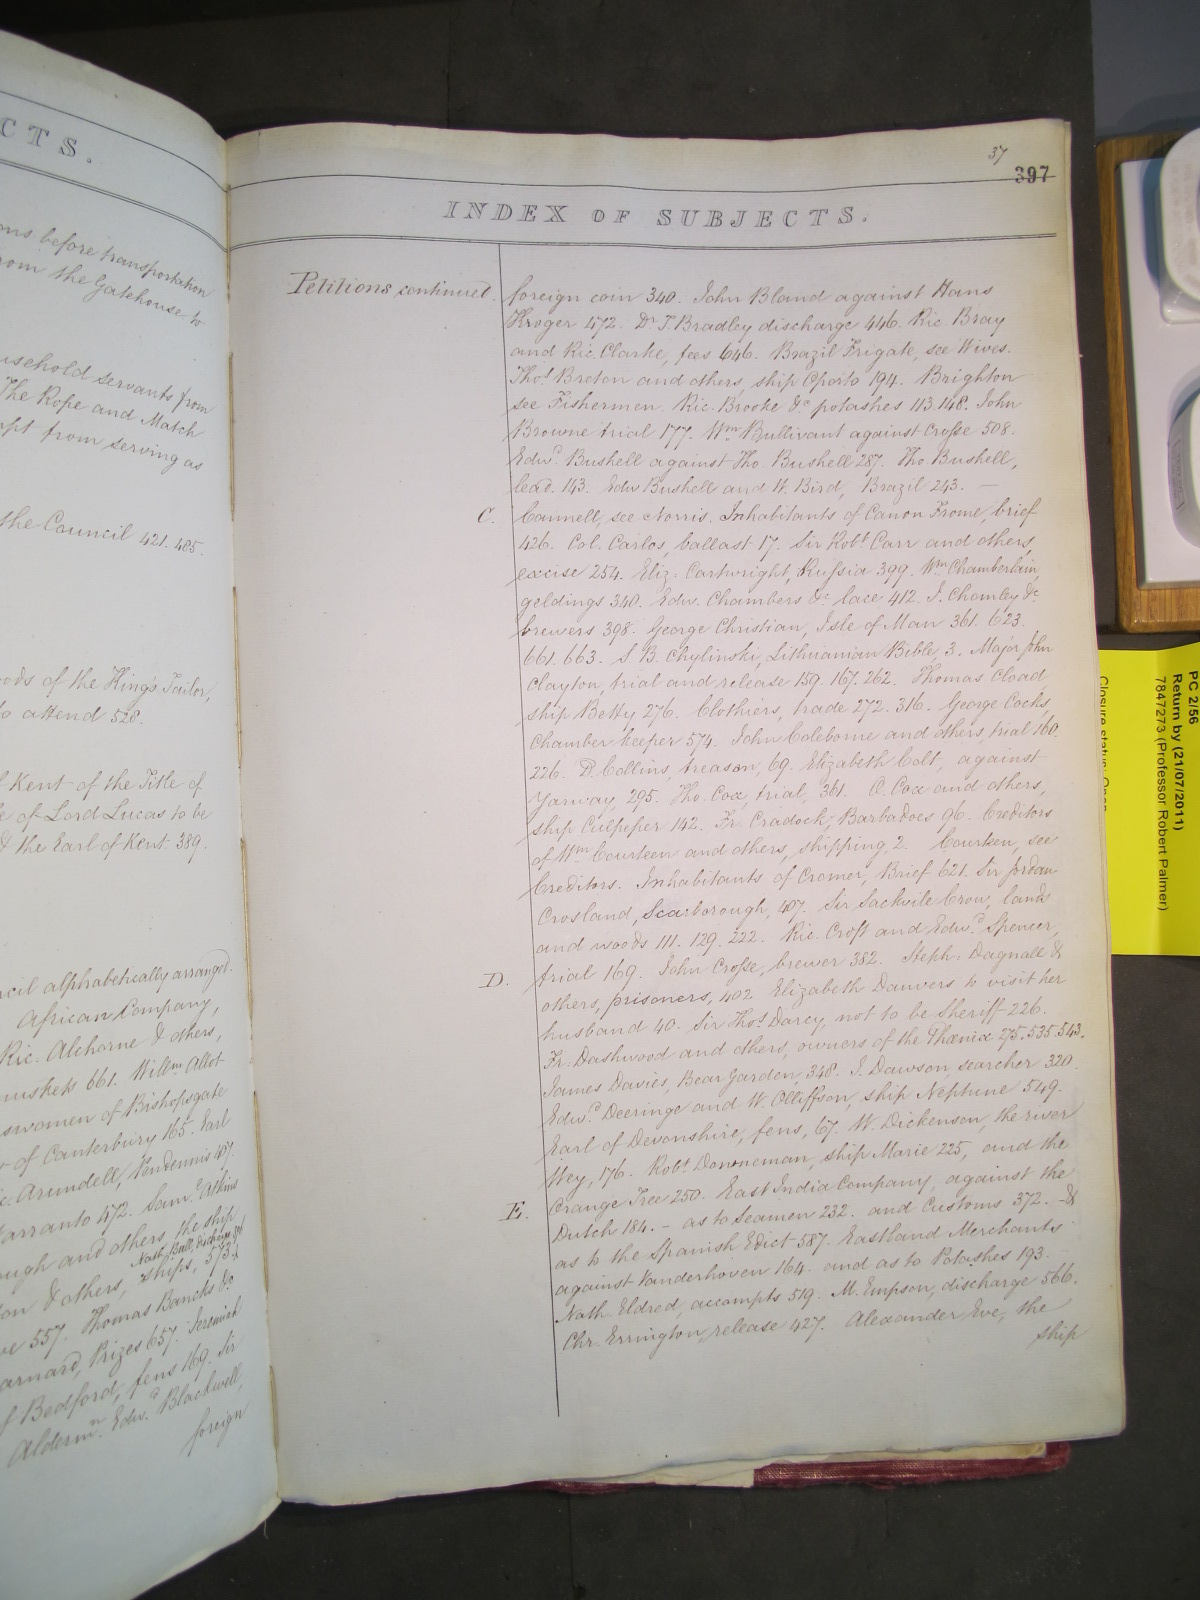 CTS.
ons before transportation
rom the Gatehouse to
usehold servants from
The Rope and Match
mpt from serving as
the Council 421. 485.
oods of the King's Tailor,
to attend 528.
f Kent of the Title of
e of Lord Lucas to be
& the Earl of Kent 389.
ncil alphabetically arranged.
African Company,
Ric. Alchorne & others,
muskets 661. Willm Allot
swomen of Bishopsgate
of Canterbury 165. Earl
c. Arundell, Pendennis 197.
Warranto 472. Saml. Atkins
ough and others, the ship
Nath. Bull, discharge
on & others, ships, 573.
ve 557. Thomas Bancks &c
arnard, Prizes 657. Jeremiah
f Bedford, fens 169. Sir
Alderm. Edwd. Blackwell,
foreign
37
397
INDEX OF SUBJECTS.
Petitions continued.
foreign coin 340. John Bland against Hans
Kroger 472. Dr. T. Bradley discharge 446. Ric. Bray
and Ric. Clarke, fees 646. Brazil Frigate, see Wives.
Thos. Breton and others, ship Oporto 194. Brighton
see Fishermen. Ric. Brooke &c. potashes 113. 148. John
Browne trial 177. Wm. Bullivant against Crosse 508.
Edwd. Bushell against Tho. Bushell 287. Tho. Bushell,
lead. 143. Edw Bushell and W. Bird, Brazil 243. —
C. Cannell, see Norris. Inhabitants of Canon Frome, brief
426. Col. Carlos, ballast 17. Sir Robt. Carr and others,
excise 254. Eliz: Cartwright, Russia 399. Wm. Chamberlain,
geldings 340. Edw. Chambers &c. lace 412. J. Chomley &c.
brewers 398. George Christian, Isle of Man 361. 623.
661. 663. S. B. Chylinski, Lithuanian Bible 3. Major John
Clayton, trial and release 159. 167. 262. Thomas Cload
ship Betty 276. Clothiers, trade 272. 316. George Cocks,
Chamber keeper 574. John Coleborne and others, trial 160.
226. D. Collins, treason, 69. Elizabeth Colt, against
Yarway, 295. Tho. Cox, trial, 361. O. Cox and others,
ship Culpeper 142. Fr. Cradock, Barbadoes 96. Creditors
of Wm. Courteen and others, shipping 2. Courteen, see
Creditors. Inhabitants of Cromer, Brief 621. Sir Jordan
Crosland, Scarborough, 407. Sir Sackvile Crow, lands
and woods 111. 129. 222. Ric. Croft and Edwd. Spencer,
D. trial 169. John Crosse, brewer 382. Steph: Dagnall &
others, prisoners, 402. Elizabeth Danvers to visit her
husband 40. Sir Thos. Darcy, not to be Sheriff 226.
Fr. Dashwood and others, owners of the Phœnix 275. 535. 543.
James Davies, Bear Garden, 348. J. Dawson, searcher 320.
Edwd. Deeringe and W. Olliffson, ship Neptune 549.
Earl of Devonshire, fens, 67. W. Dickenson, the river
Wey, 176. Robt. Donneman, ship Marie 225, and the
E. Orange Tree 250. East India Company, against the
Dutch 184. – as to Seamen 232. and Customs 372. – &
as to the Spanish Edict 587. Eastland Merchants
against Vanderhoven 164. and as to Potashes 193.
Nath. Eldred, accompts 519. M. Empson, discharge 566.
Chr. Errington, release 427. Alexander Eve, the
ship
PC 2/56
Return by (21/07/2011)
7847273 (Professor Robert Palmer)
Closure status: Open